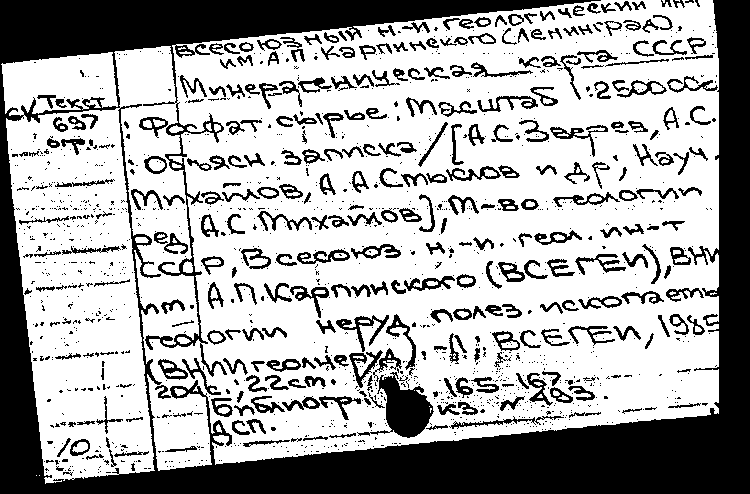 Всесоюзный н.-и. геологический ин-т
им. А.П. Карпинского (Ленинград).
Минерагеническая карта СССР
Ск Текст
697
огр.
: Фосфат. сырье : Масштаб 1:2500000
: Объясн. записка / [А.С. Зверев, А.С.
Михайлов, А.А. Смыслов и др; Науч.
ред. А.С. Михайлов]; М-во геологии
СССР, Всесоюз. н.-и. геол. ин-т
им. А.П. Карпинского (ВСЕГЕИ), ВНИ
геологии неруд. полез. ископаемы
(ВНИИгеолнеруд). - Л.: ВСЕГЕИ, 1985
204 с.; 22 см.
Библиогр. с. 165-167.
кз. № 493.
ДСП.
10